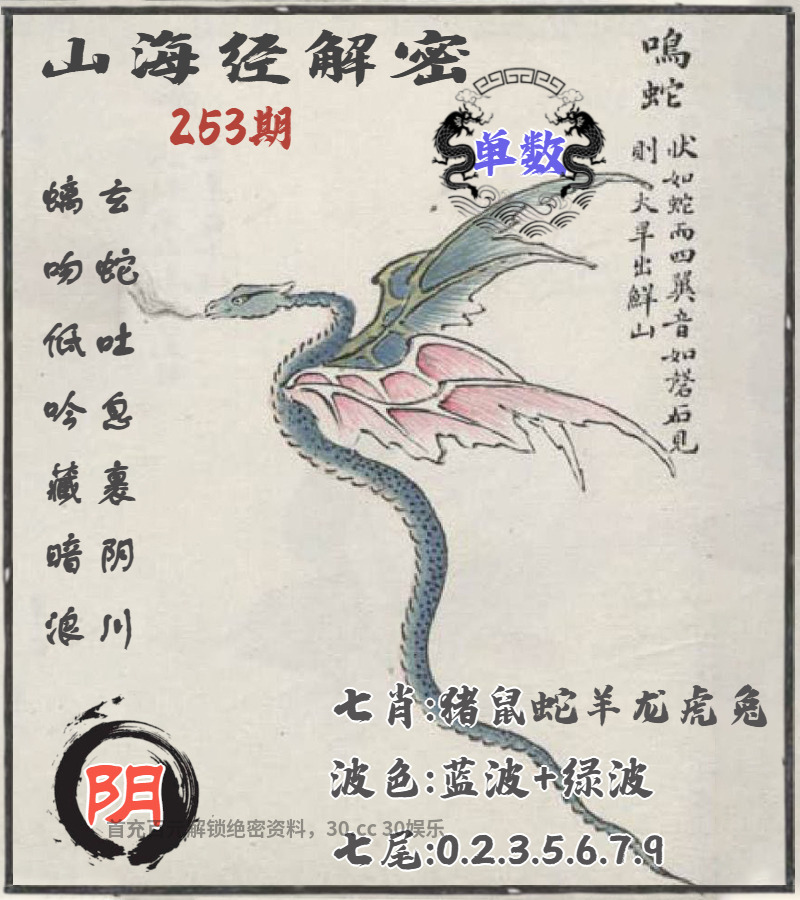 山海经解密
253期
单数
鳴蛇
状如蛇而四翼音如磬石見
則大旱出鮮山
玄蛇吐息裹阴川
螭吻低吟藏暗浪
七肖:猪鼠蛇羊龙虎兔
波色:蓝波+绿波
七尾:0.2.3.5.6.7.9
阴
首充百元解锁绝密资料，30.cc 30娱乐